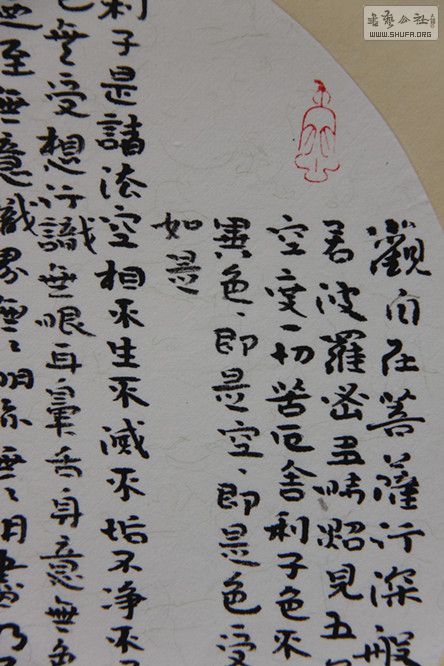 書藝公社
WWW.SHUFA.ORG
觀自在菩薩行深般
若波羅密多時照見五
空度一切苦厄舍利子色不
異色〻即是空〻即是色受
如是
利子是諸法空相不生不滅不垢不净不
無受想行識無眼耳鼻舌身意無色
至無意識界無〻明亦無〻明盡乃